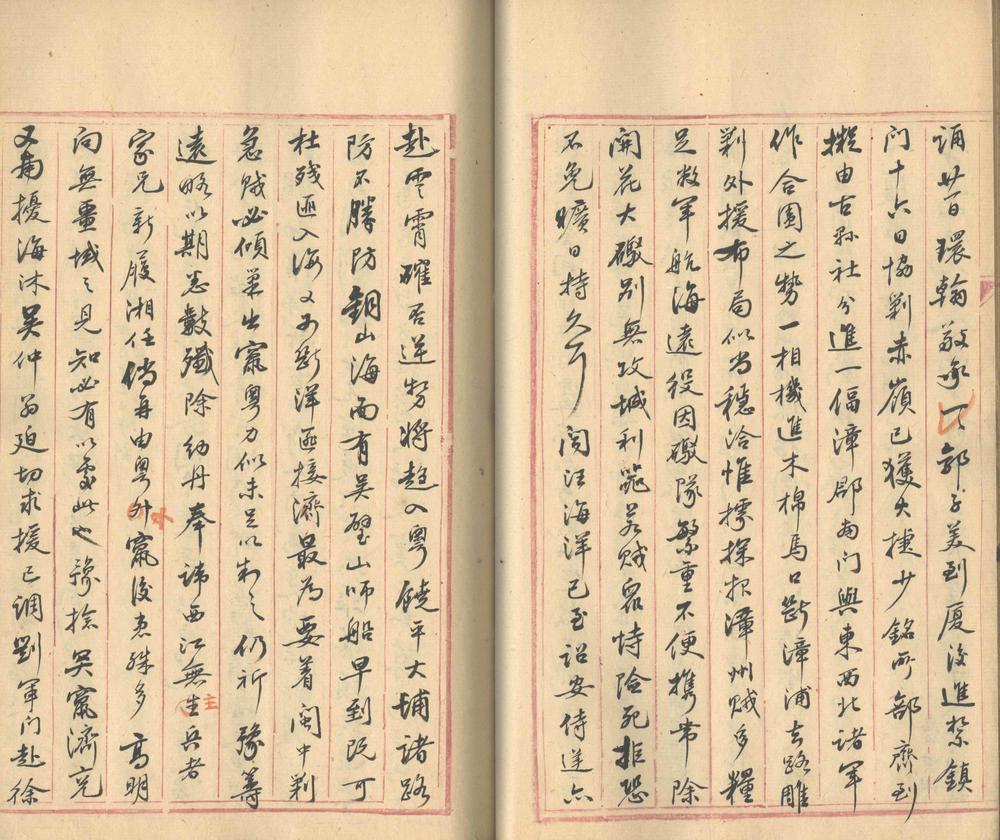 誦廿日環翰敬承一一郭子美到厦後進紮鎮
门十六日協剿赤嶺已獲大捷少銘所部齊到
擬由古縣社分進一偪漳郡南门與東西北諸军
作合圍之勢一相機進木棉馬口斷漳浦去路雕
剿外援布局似尚穩洽惟據探報漳州贼多糧
足敝军航海遠役因礮隊繁重不便攜带除
開花大礮别無攻城利器若贼眾恃險死拒恐
不免曠日持久耳閩汪海洋已至詔安侍逆亦
赴雲霄確否逆势将趋入粤饒平大埔諸路
防不勝防銅山海面有吴壁山师船早到既可
杜残匪入海又可斷洋匪接濟最为要着闽中剿
急贼必傾巢出竄粤力似未足以制之仍祈豫籌
遠略以期悉數殲除幼丹奉諱西江無主兵者
家兄新履湘任倘再由粤外竄後患殊多高明
向無畺域之見知必有以處此也豫捻吴竄濟兖
又南擾海沐吴仲翁迫切求援已调劉军门赴徐